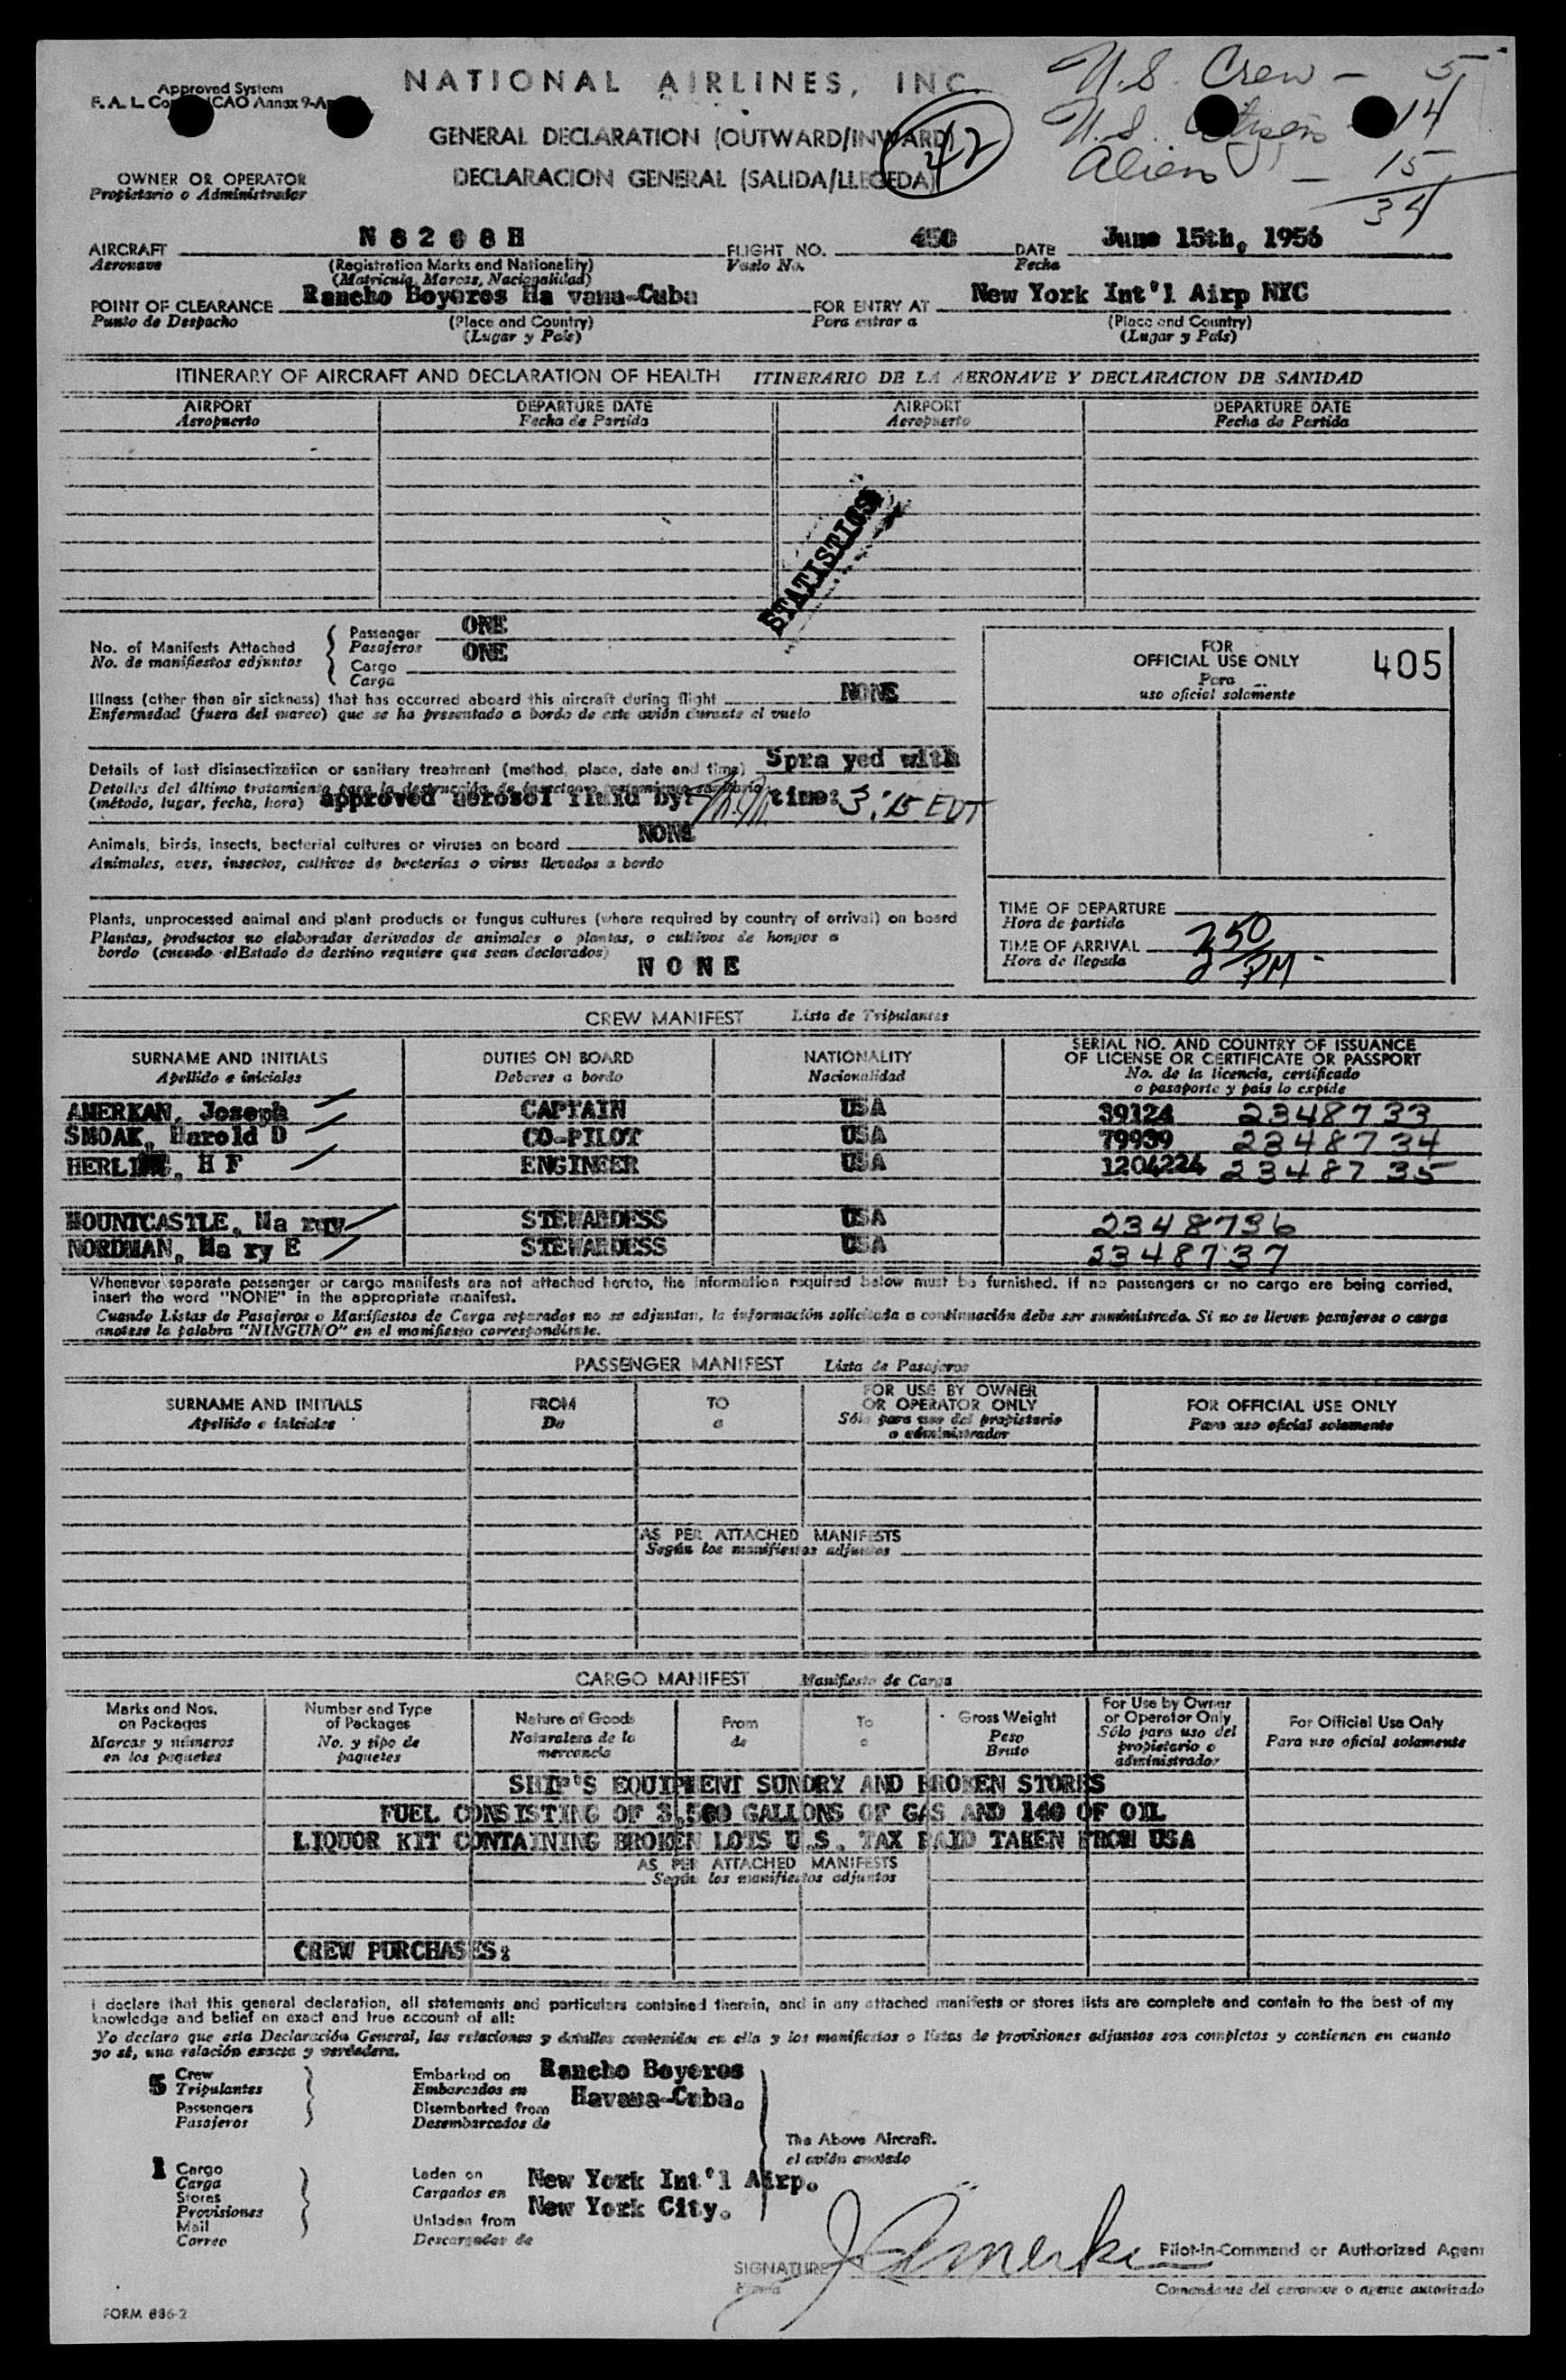 Approved System
F. A. L. Co ICAO Annex 9-A
NATIONAL AIRLINES, INC.
GENERAL DECLARATION (OUTWARD/INWARD)
DECLARACION GENERAL (SALIDA/LLEGEDA)
42
U.S. Crew - 5
U.S. Citizens 14
Aliens - 15
34
OWNER OR OPERATOR
Propietario o Administrador
AIRCRAFT N 8 2 0 8 H FLIGHT NO. 450 DATE June 15th, 1956
Aeronave (Registration Marks and Nationality) Vuelo No. Fecha
(Matricula, Marcas, Nacionalidad)
POINT OF CLEARANCE Rancho Boyeros Ha vana-Cuba FOR ENTRY AT New York Int'l Airp NYC
Punto de Despacho (Place and Country) Para entrar a (Place and Country)
(Lugar y País) (Lugar y País)
ITINERARY OF AIRCRAFT AND DECLARATION OF HEALTH ITINERARIO DE LA AERONAVE Y DECLARACION DE SANIDAD
AIRPORT DEPARTURE DATE AIRPORT DEPARTURE DATE
Aeropuerto Fecha de Partida Aeropuerto Fecha de Partida
STATISTICS
No. of Manifests Attached Passenger ONE
No. de manifiestos adjuntos Pasajeros
Cargo ONE
Carga
FOR
OFFICIAL USE ONLY 405
Para
uso oficial solamente
Illness (other than air sickness) that has occurred aboard this aircraft during flight NONE
Enfermedad (fuera del mareo) que se ha presentado a bordo de este avión durante el vuelo
Details of last disinsectization or sanitary treatment (method, place, date and time) Spra yed with
Detalles del último tratamiento para la destrucción de insectos o tratamiento sanitario
(método, lugar, fecha, hora) approved aerosol fluid by: time: 3:15 EDT
Animals, birds, insects, bacterial cultures or viruses on board NONE
Animales, aves, insectos, cultivos de bacterias o virus llevados a bordo
Plants, unprocessed animal and plant products or fungus cultures (where required by country of arrival) on board
Plantas, productos no elaborados derivados de animales o plantas, o cultivos de hongos a
bordo (cuando elEstado de destino requiere que sean declarados)
N O N E
TIME OF DEPARTURE
Hora de partida
TIME OF ARRIVAL 350 PM
Hora de llegada
CREW MANIFEST Lista de Tripulantes
SURNAME AND INITIALS DUTIES ON BOARD NATIONALITY SERIAL NO. AND COUNTRY OF ISSUANCE
OF LICENSE OR CERTIFICATE OR PASSPORT
Apellido e iniciales Deberes a bordo Nacionalidad No. de la licencia, certificado
o pasaporte y país lo expide
AMERKAN, Joseph CAPTAIN USA 39124 2348733
SMOAK, Harold D CO-PILOT USA 79939 2348734
HERLING, H F ENGINEER USA 1204224 2348735
MOUNTCASTLE, Ma rgy STEWARDESS USA 2348736
NORDMAN, Ma ry E STEWARDESS USA 2348737
Whenever separate passenger or cargo manifests are not attached hereto, the information required below must be furnished. If no passengers or no cargo are being carried,
insert the word "NONE" in the appropriate manifest.
Cuando Listas de Pasajeros o Manifiestos de Carga separados no se adjuntan, la información solicitada a continuación debe ser suministrada. Si no se llevan pasajeros o carga
anotese la palabra "NINGUNO" en el manifiesto correspondiente.
PASSENGER MANIFEST Lista de Pasajeros
SURNAME AND INITIALS FROM TO FOR USE BY OWNER
OR OPERATOR ONLY FOR OFFICIAL USE ONLY
Apellido e iniciales De a Sólo para uso del propietario
o administrador Para uso oficial solamente
AS PER ATTACHED MANIFESTS
Según los manifiestos adjuntos
CARGO MANIFEST Manifiesto de Carga
Marks and Nos.
on Packages
Marcas y números
en los paquetes
Number and Type
of Packages
No. y tipo de
paquetes
Nature of Goods
Naturaleza de la
mercancía
From
de
To
a
Gross Weight
Peso
Bruto
For Use by Owner
or Operator Only
Sólo para uso del
propietario o
administrador
For Official Use Only
Para uso oficial solamente
SHIP'S EQUIPMENT SUNDRY AND BROKEN STORES
FUEL CONSISTING OF 3,500 GALLONS OF GAS AND 140 OF OIL
LIQUOR KIT CONTAINING BROKEN LOTS U.S. TAX PAID TAKEN FROM USA
AS PER ATTACHED MANIFESTS
Según los manifiestos adjuntos
CREW PURCHASES:
I declare that this general declaration, all statements and particulars contained therein, and in any attached manifests or stores lists are complete and contain to the best of my
knowledge and belief an exact and true account of all:
Yo declaro que esta Declaración General, las relaciones y detalles contenidos en ella y los manifiestos o listas de provisiones adjuntos son completos y contienen en cuanto
yo sé, una relación exacta y verdadera.
5 Crew
Tripulantes
Passengers
Pasajeros
Embarked on Rancho Boyeros
Embarcados en
Disembarked from Havana-Cuba.
Desembarcados de
The Above Aircraft.
el avión anotado
1 Cargo
Carga
Stores
Provisiones
Mail
Correo
Laden on New York Int'l Airp.
Cargados en
Unladen from New York City.
Descargados de
SIGNATURE J Amerka Pilot-in-Command or Authorized Agent
Firma Comandante del aeronave o agente autorizado
FORM 886-2